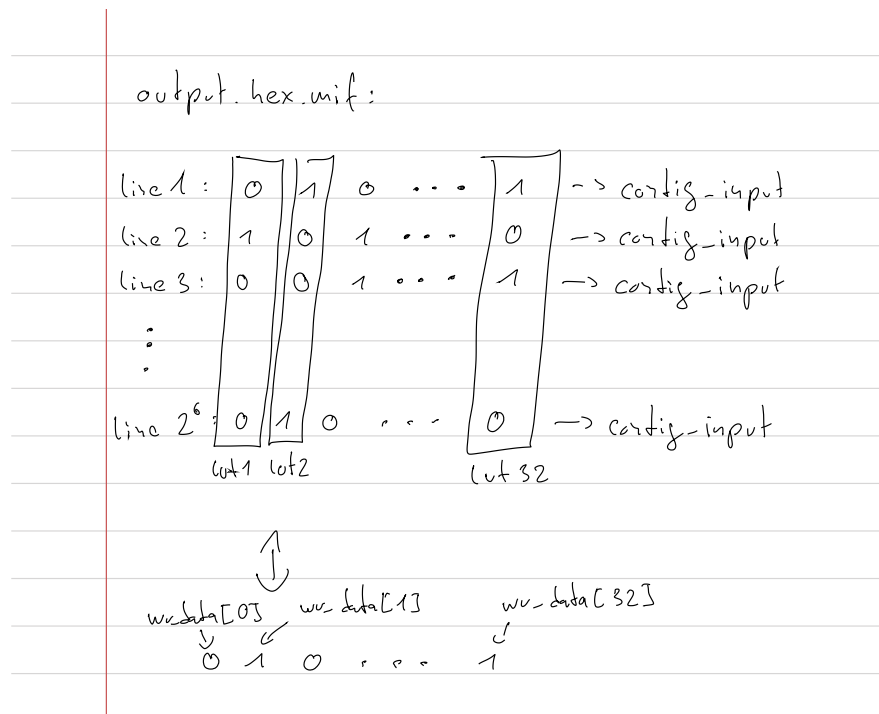 output.hex.mif:
line 1 : 0 1 0 ... 1 -> config_input
line 2 : 1 0 1 ... 0 -> config_input
line 3 : 0 0 1 ... 1 -> config_input
line 2^6 : 0 1 0 ... 0 -> config_input
lut1 lut2 lut 32
wr_data[0] wr_data[1] wr_data[32]
0 1 0 ... 1